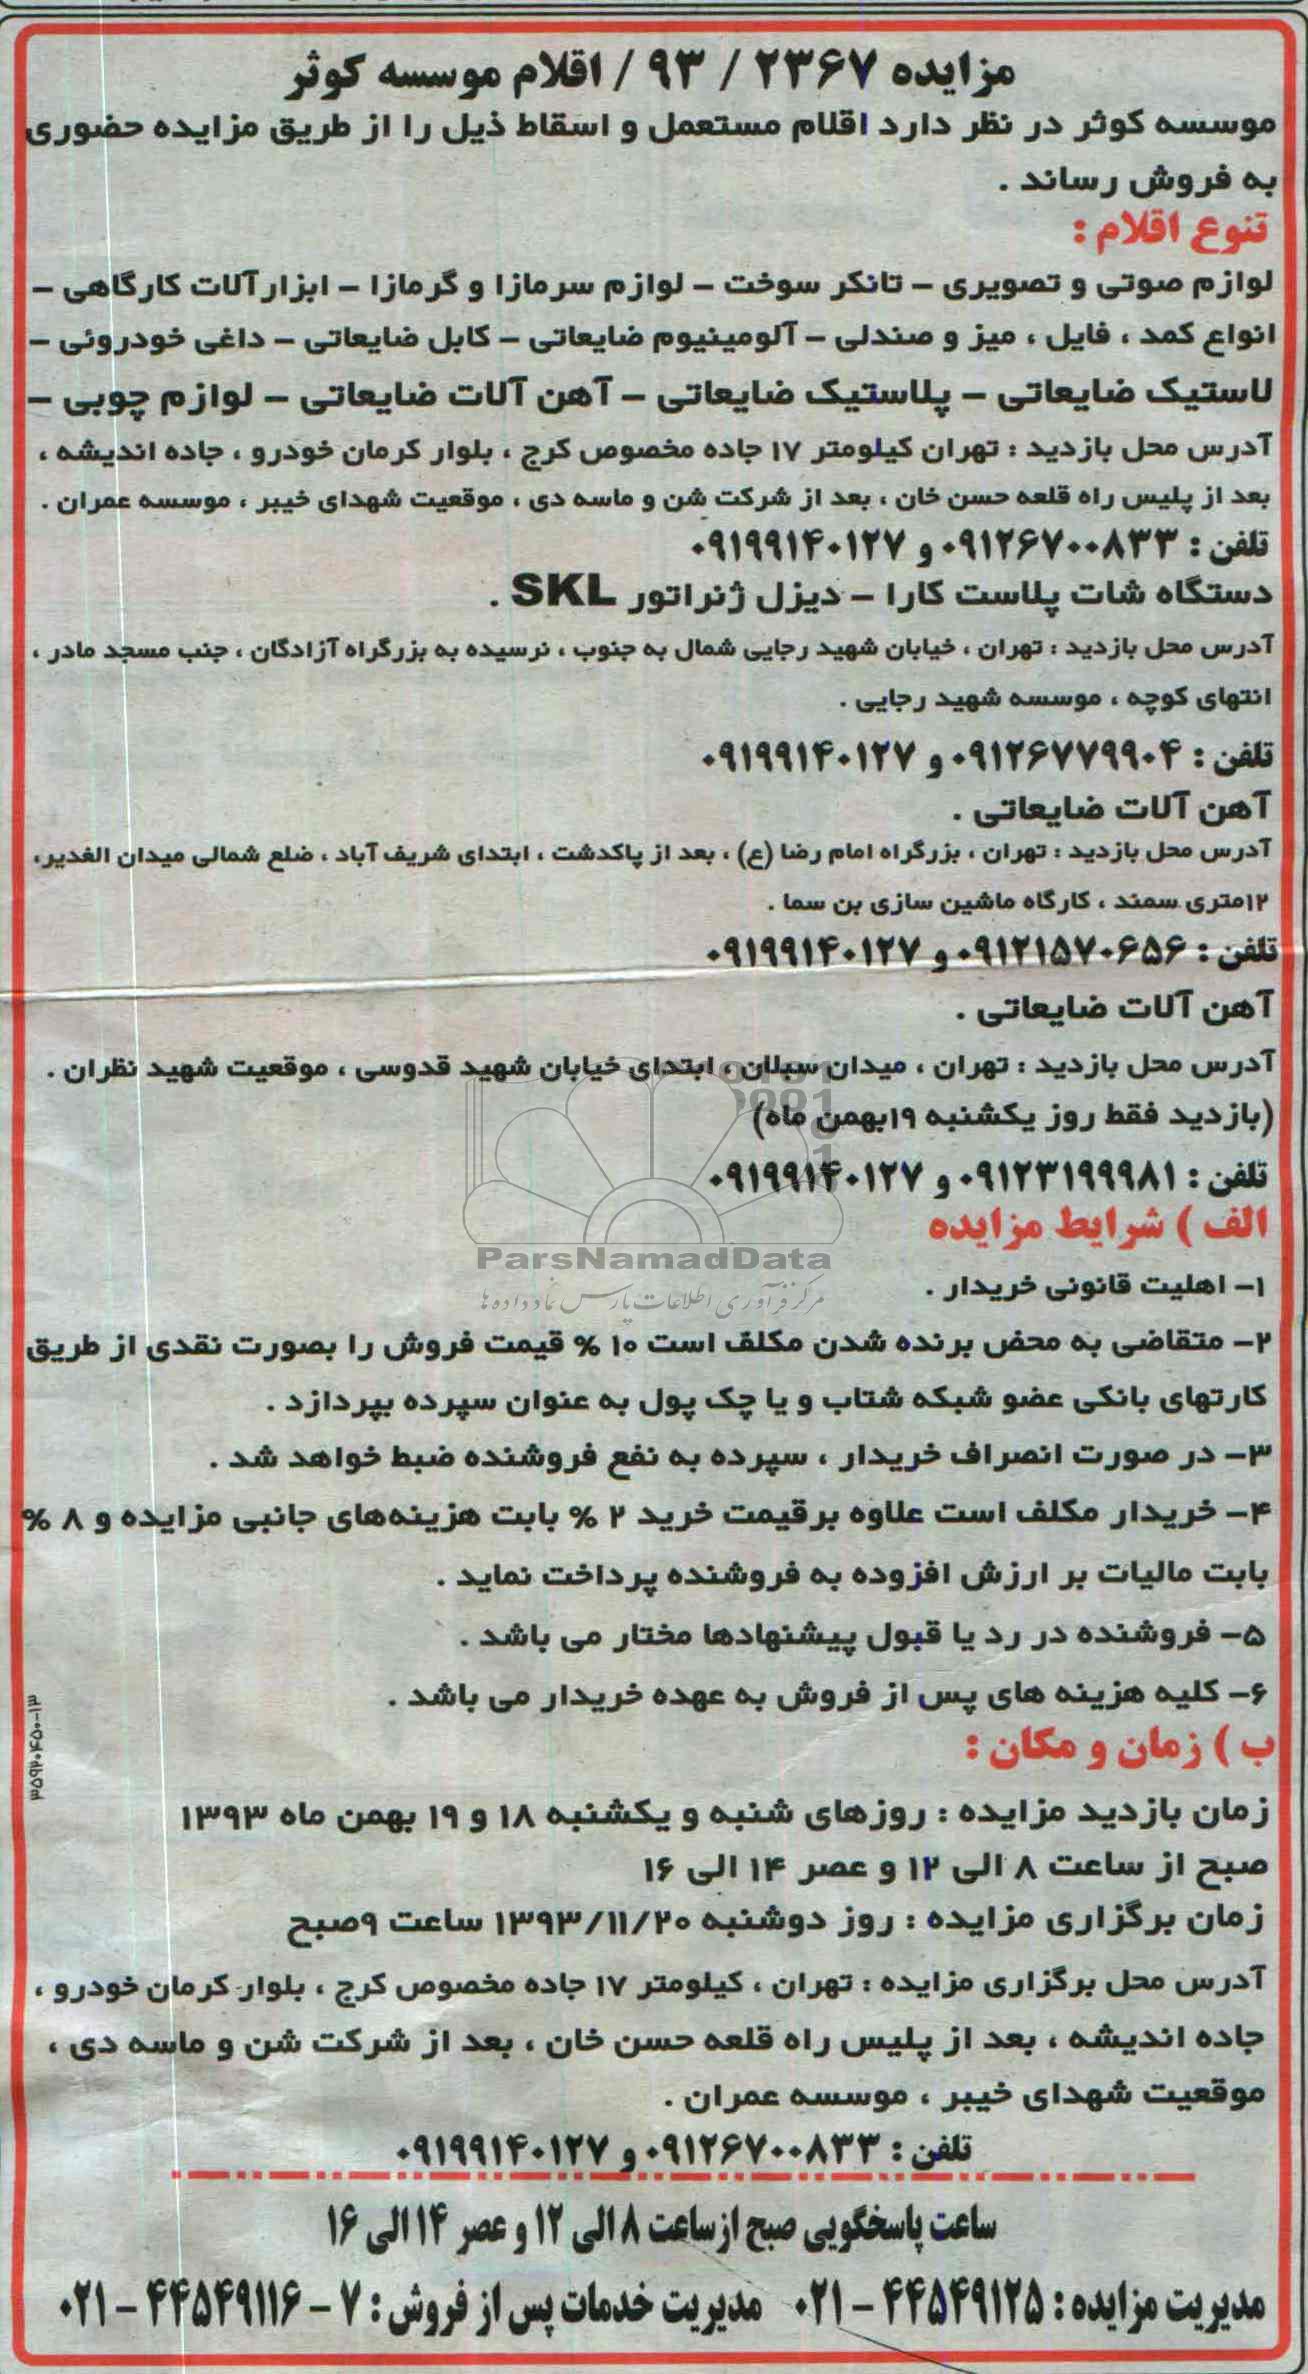 مزایده ۲۳۶۷ / ۹۳ / اقلام موسسه کوثر
موسسه کوثر در نظر دارد اقلام مستعمل و اسقاط ذیل را از طریق مزایده حضوری
به فروش رساند .
تنوع اقلام :
لوازم صوتی و تصویری – تانکر سوخت – لوازم سرمازا و گرمازا – ابزارآلات کارگاهی –
انواع کمد ، فایل ، میز و صندلی – آلومینیوم ضایعاتی – کابل ضایعاتی – داغی خودروئی –
لاستیک ضایعاتی – پلاستیک ضایعاتی – آهن آلات ضایعاتی – لوازم چوبی –
آدرس محل بازدید : تهران کیلومتر ۱۷ جاده مخصوص کرج ، بلوار کرمان خودرو ، جاده اندیشه ،
بعد از پلیس راه قلعه حسن خان ، بعد از شرکت شن و ماسه دی ، موقعیت شهدای خیبر ، موسسه عمران .
تلفن : ۰۹۱۲۶۷۰۰۸۳۳ و ۰۹۱۹۹۱۴۰۱۲۷
دستگاه شات پلاست کارا – دیزل ژنراتور SKL .
آدرس محل بازدید : تهران ، خیابان شهید رجایی شمال به جنوب ، نرسیده به بزرگراه آزادگان ، جنب مسجد مادر ،
انتهای کوچه ، موسسه شهید رجایی .
تلفن : ۰۹۱۲۶۷۷۹۹۰۴ و ۰۹۱۹۹۱۴۰۱۲۷
آهن آلات ضایعاتی .
آدرس محل بازدید : تهران ، بزرگراه امام رضا (ع) ، بعد از پاکدشت ، ابتدای شریف آباد ، ضلع شمالی میدان الغدیر،
۱۲متری سمند ، کارگاه ماشین سازی بن سما .
تلفن : ۰۹۱۲۱۵۷۰۶۵۶ و ۰۹۱۹۹۱۴۰۱۲۷
آهن آلات ضایعاتی .
آدرس محل بازدید : تهران ، میدان سبلان ، ابتدای خیابان شهید قدوسی ، موقعیت شهید نظران .
(بازدید فقط روز یکشنبه ۱۹بهمن ماه)
تلفن : ۰۹۱۲۳۱۹۹۹۸۱ و ۰۹۱۹۹۱۴۰۱۲۷
الف ) شرایط مزایده
ParsNamadData
مرکز فرآوری اطلاعات پارس نماد داده ها
۱– اهلیت قانونی خریدار .
۲– متقاضی به محض برنده شدن مکلف است ۱۰ % قیمت فروش را بصورت نقدی از طریق
کارتهای بانکی عضو شبکه شتاب و یا چک پول به عنوان سپرده بپردازد .
۳– در صورت انصراف خریدار ، سپرده به نفع فروشنده ضبط خواهد شد .
۴– خریدار مکلف است علاوه برقیمت خرید ۲ % بابت هزینه‌های جانبی مزایده و ۸ %
بابت مالیات بر ارزش افزوده به فروشنده پرداخت نماید .
۵– فروشنده در رد یا قبول پیشنهادها مختار می باشد .
۶– کلیه هزینه های پس از فروش به عهده خریدار می باشد .
ب ) زمان و مکان :
زمان بازدید مزایده : روزهای شنبه و یکشنبه ۱۸ و ۱۹ بهمن ماه ۱۳۹۳
صبح از ساعت ۸ الی ۱۲ و عصر ۱۴ الی ۱۶
زمان برگزاری مزایده : روز دوشنبه ۱۳۹۳/۱۱/۲۰ ساعت ۹صبح
آدرس محل برگزاری مزایده : تهران ، کیلومتر ۱۷ جاده مخصوص کرج ، بلوار کرمان خودرو ،
جاده اندیشه ، بعد از پلیس راه قلعه حسن خان ، بعد از شرکت شن و ماسه دی ،
موقعیت شهدای خیبر ، موسسه عمران .
تلفن : ۰۹۱۲۶۷۰۰۸۳۳ و ۰۹۱۹۹۱۴۰۱۲۷
ساعت پاسخگویی صبح ازساعت ۸ الی ۱۲ و عصر ۱۴ الی ۱۶
مدیریت مزایده : ۴۴۵۴۹۱۲۵ – ۰۲۱ مدیریت خدمات پس از فروش : ۷ – ۴۴۵۴۹۱۱۶ – ۰۲۱